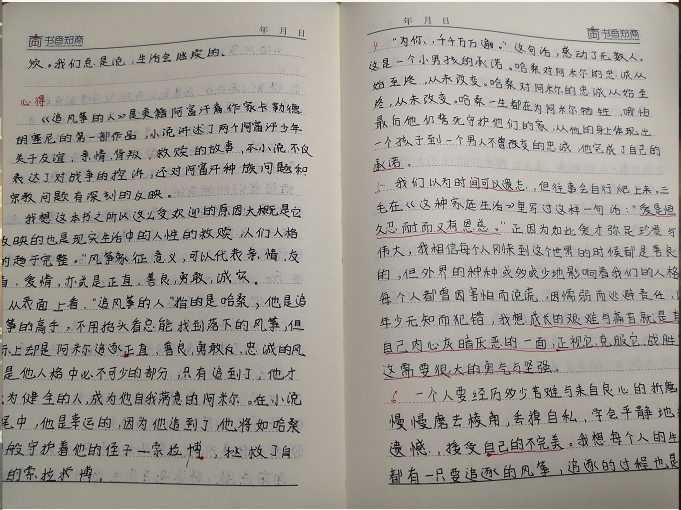 书香知商
年 月 日
欣。我们总是说,生活会继续的。
心得
《追风筝的人》是美籍阿富汗裔作家卡勒德
胡塞尼的第一部作品,小说讲述了两个阿富汗少年
关于友谊,亲情,背叛,救赎的故事,本小说不仅
表达了对战争的控诉,还对阿富汗种族问题和
宗教问题有深刻的反映。
我想这本书之所以这么受欢迎的原因大概是它
反映的也是现实生活中的人性的救赎,从们人格
的趋于完整。“风筝象征意义,可以代表亲情,友
爱情,亦或是正直,善良,勇敢,诚实。
从表面上看,“追风筝的人”指的是哈桑,他是追
筝的高手,不用抬头看总能找到落下的风筝,但
际上却是阿米尔追逐正直,善良,勇敢,忠诚的风
是他人格中必不可少的部分,只有追到了,他才
为健全的人,成为他自我满意的阿米尔。在小说
尾中,他是幸运的,因为他追到了他,将如哈桑
般守护着他的侄子—索拉博,拯救了自
的索拉博。
年 月 日
书香知商
4 “为你,千千万万遍。”这句话,感动了无数人。
这是一个小男孩的承诺。哈桑对阿米尔的忠诚从
始至终,从未改变。哈桑对阿米尔的忠诚从始至
终,从未改变。哈桑一生都在为阿米尔牺牲,哪怕
最后他仍誓死守护他们的家,从他的身上体现出
一个孩子到一个男人不曾改变的忠诚,他完成了自己的
承诺。
5 我们以为时间可以遗忘,但往事会自行爬上来。三
毛在《这种家庭生活》里写过这样一句话:“爱是恒
久忍耐而又有恩慈。”正因为如此爱才弥足珍贵与
伟大,我相信每个人刚来到这个世界的时候都是善良
的,但外界的种种或多或少地影响着我们的人格
每个人都曾因害怕而说谎,因懦弱而逃避责任,
年少无知而犯错,我想成长的艰难与痛苦就是
自己内心灰暗厌恶的一面,正视它,克服它,战胜
这需要很大的勇气与坚强。
6 一个人要经历多少苦难与来自良心的折磨
慢慢磨去棱角,丢掉自私,学会平静地
遗憾,接受自己的不完美。我想每个人的生
都有一只要追逐的风筝,追逐的过程也是